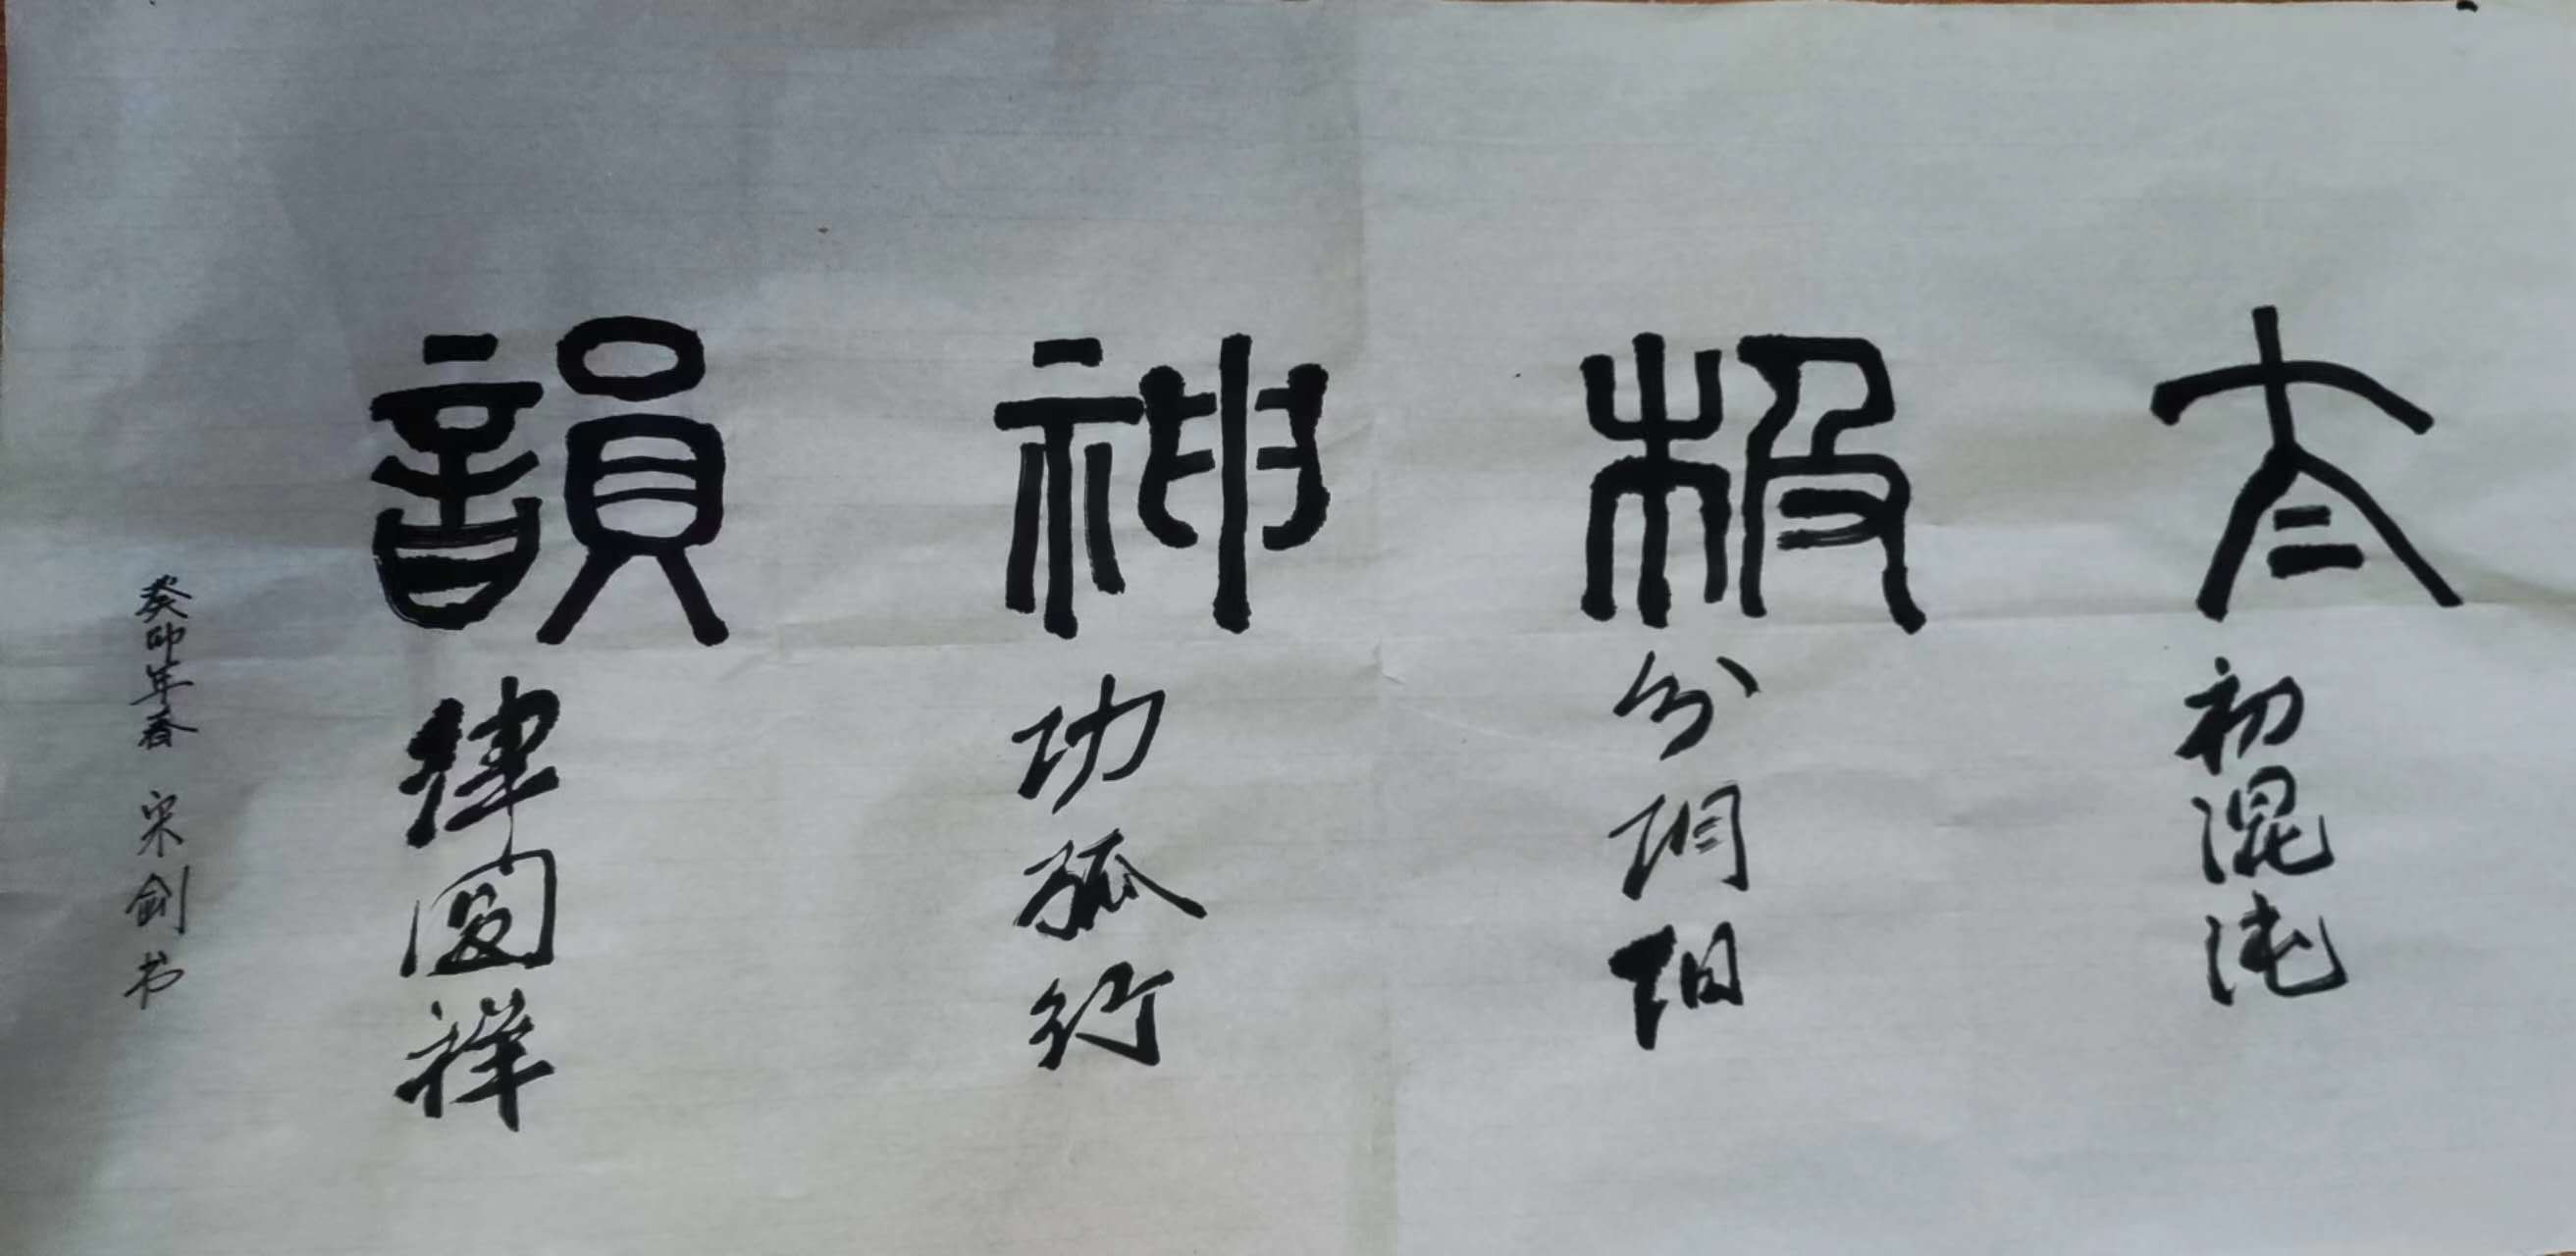 太初混沌
极分阴阳
神功孤行
韻律圆祥
癸卯年春 宋剑书